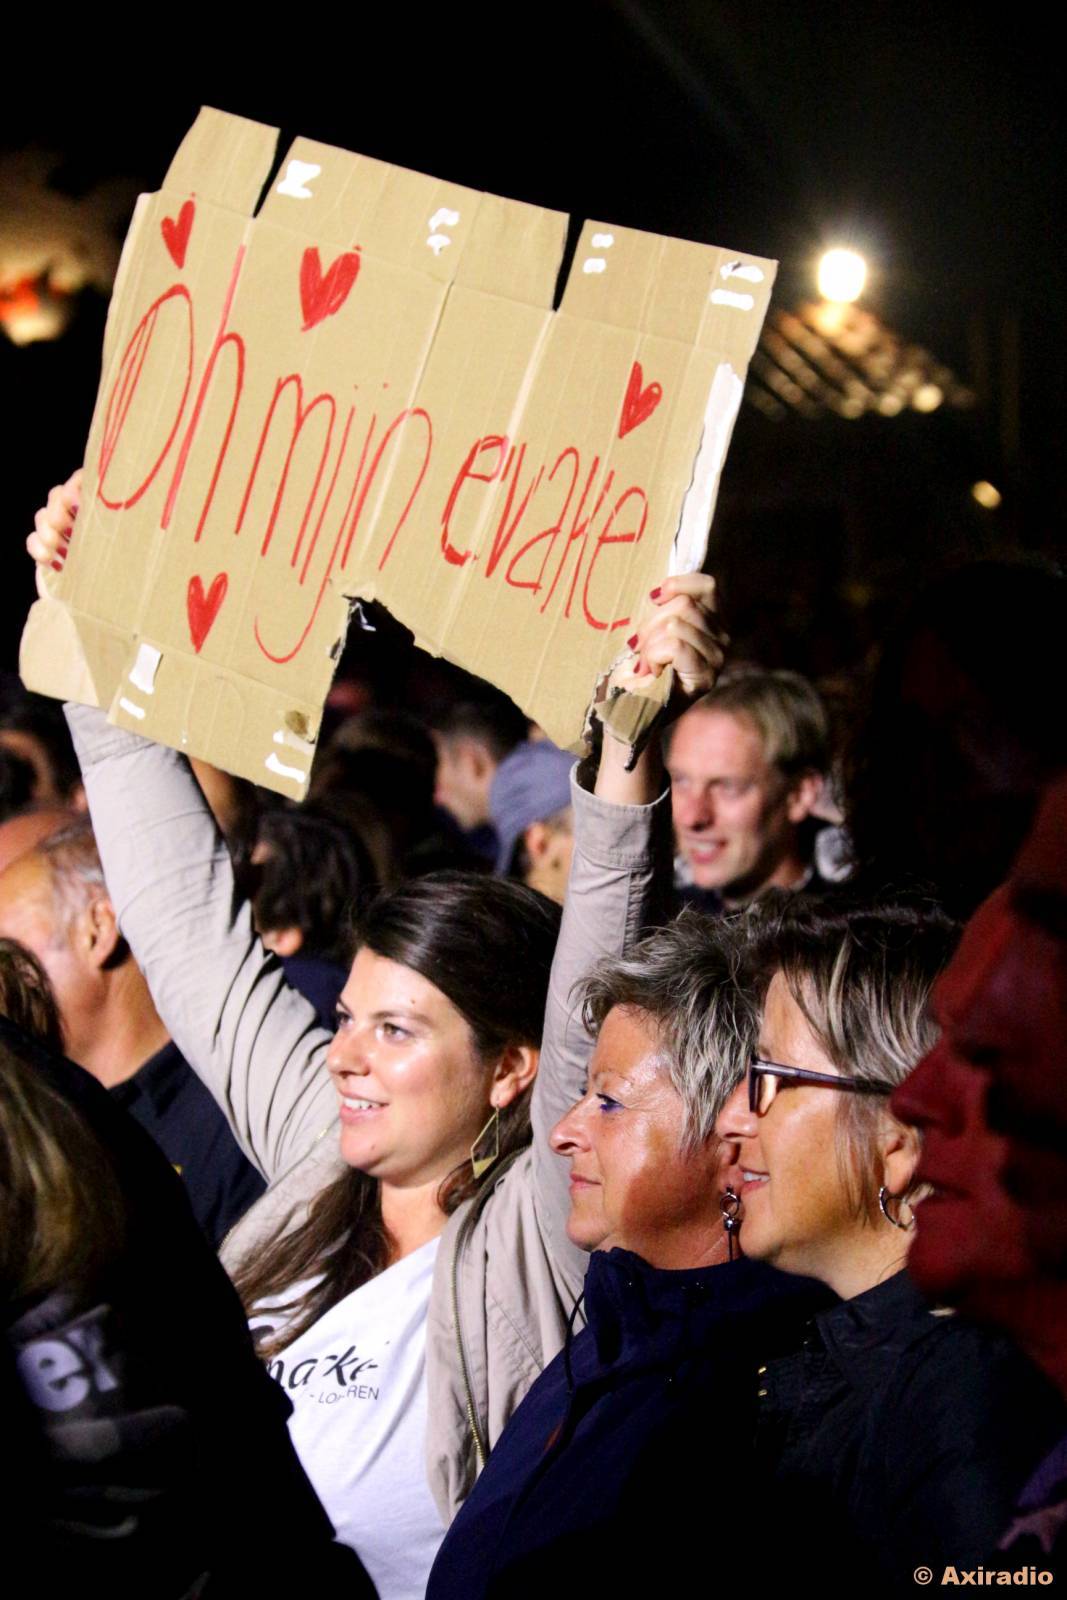 Oh mijn evakie
er
- LOKEREN
© Axiradio